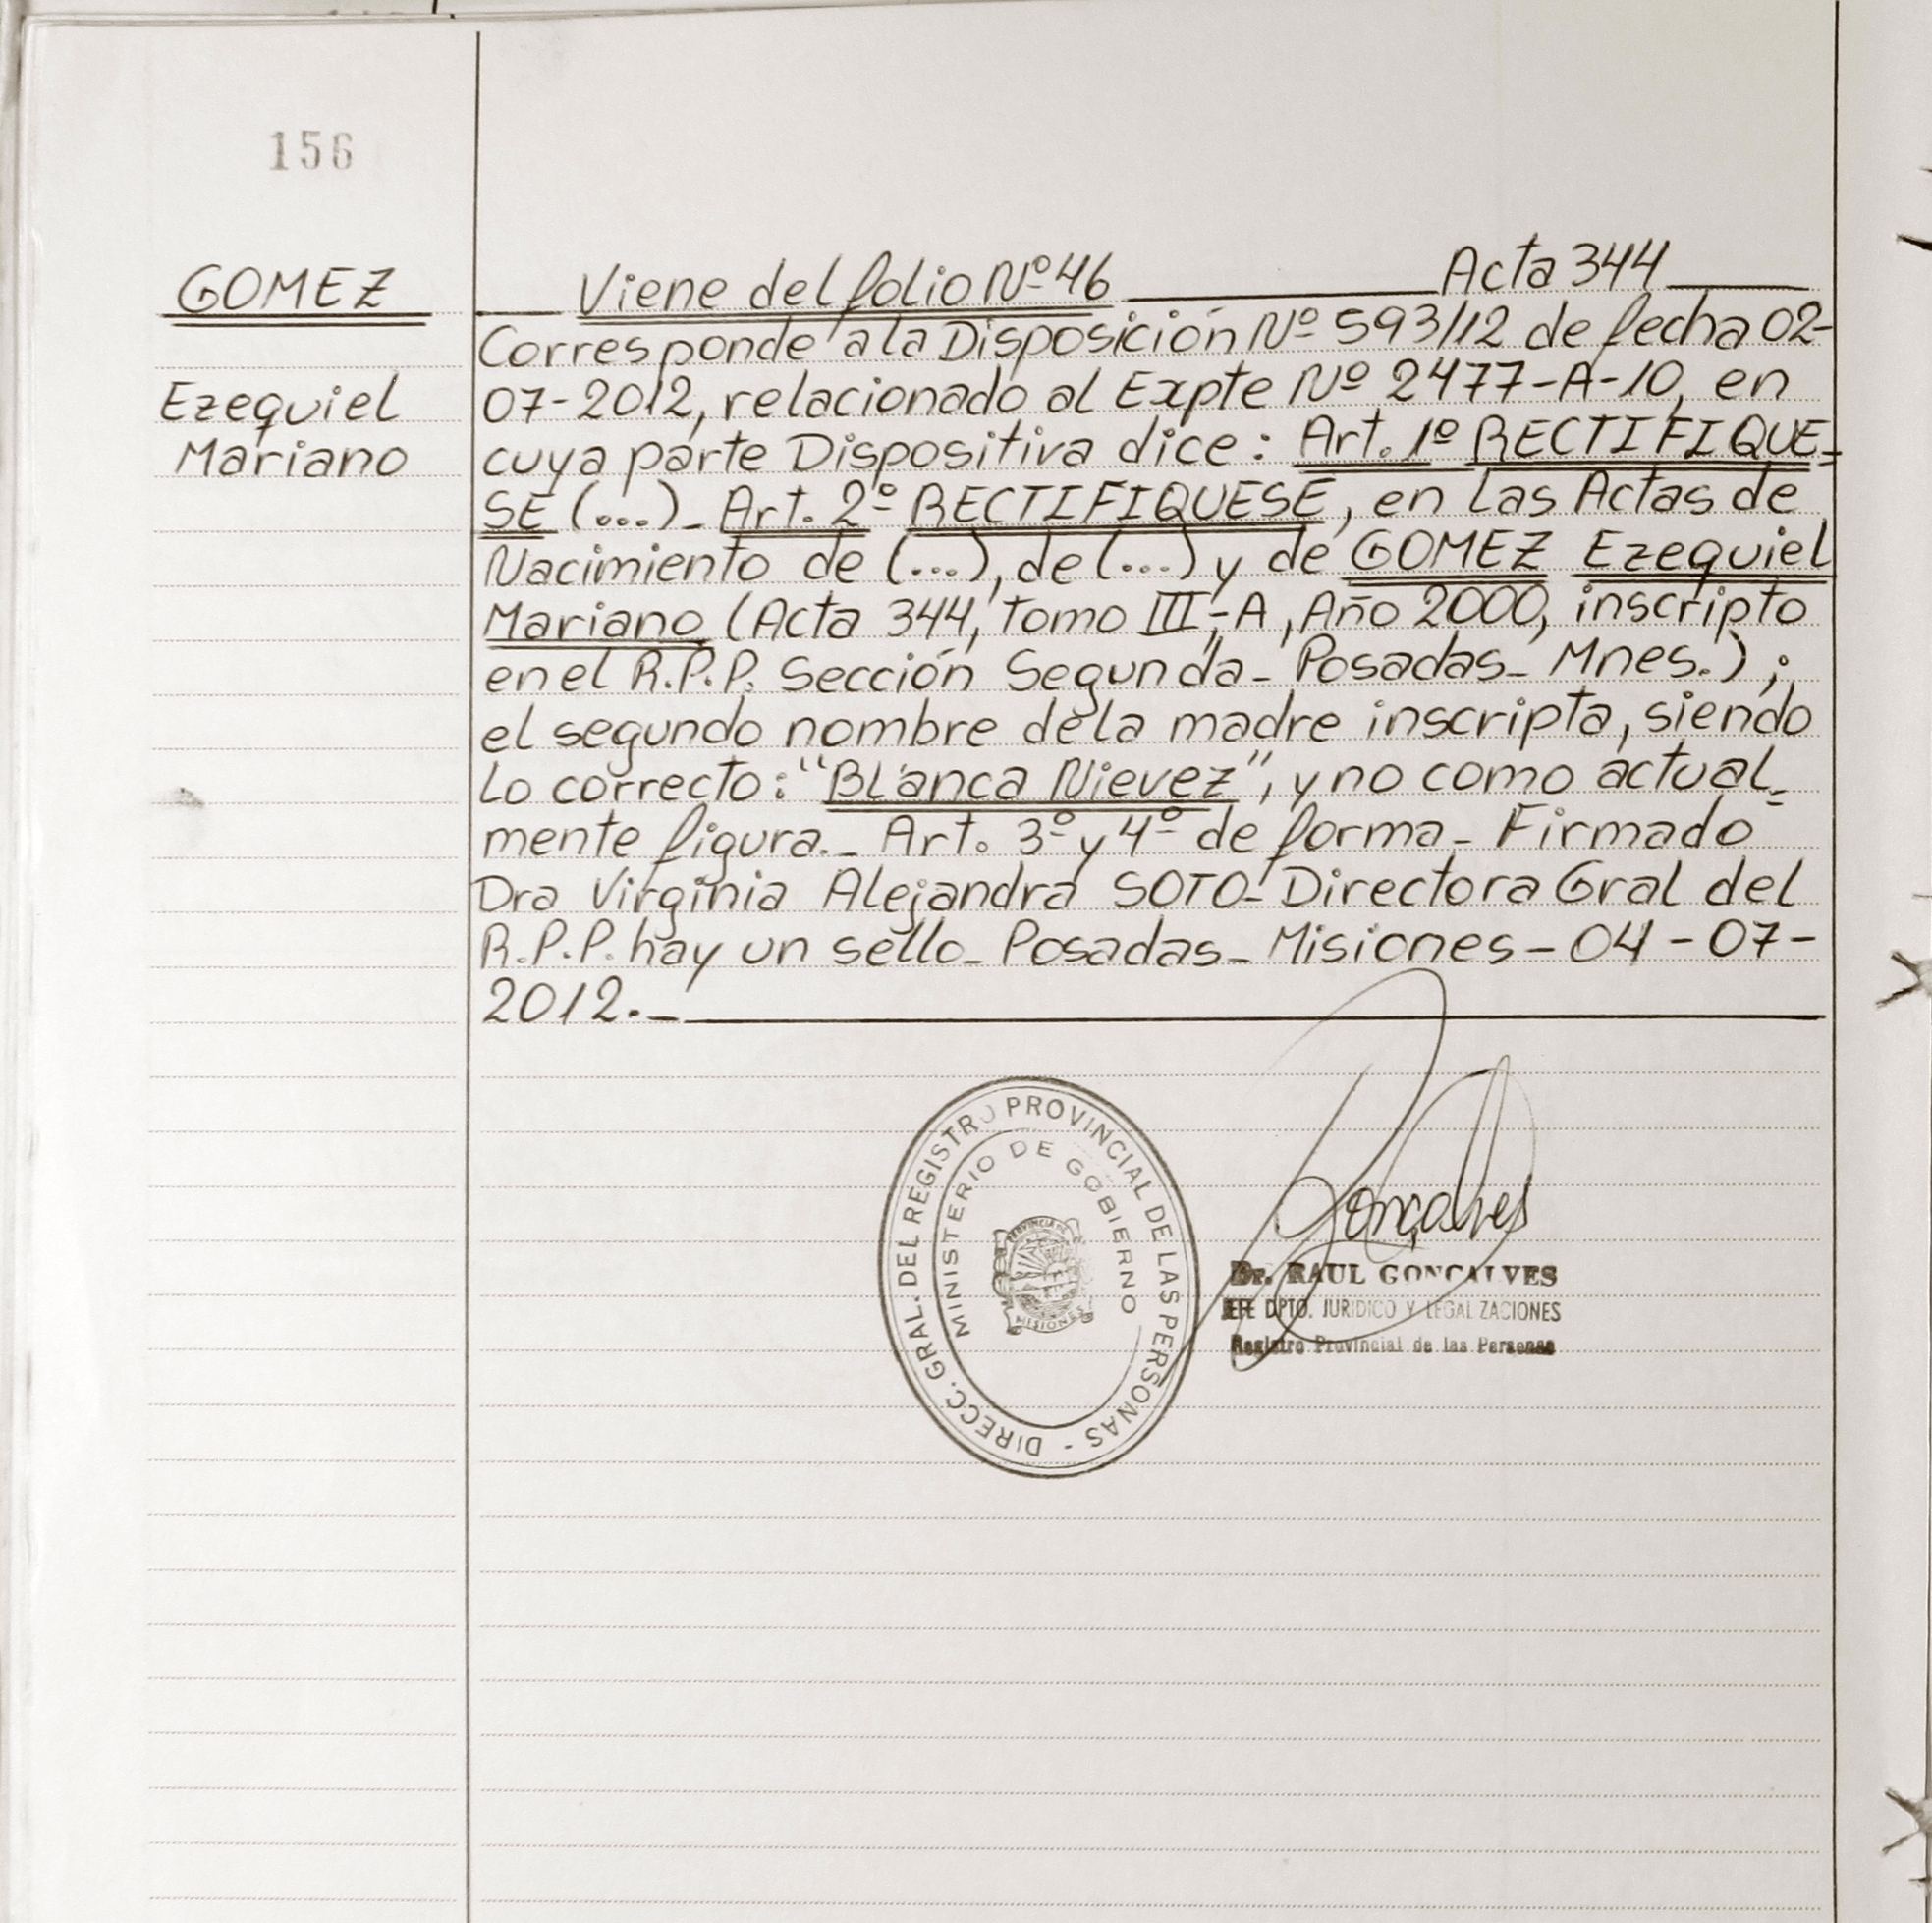 156
GOMEZ
Ezequiel
Mariano
Viene del folio Nº 46 Acta 344
Corresponde a la Disposición Nº 593/12 de fecha 02-
07-2012, relacionado al Expte Nº 2477-A-10, en
cuya parte Dispositiva dice: Art. 1º RECTIFIQUE=
SE (...)_ Art. 2º RECTIFIQUESE, en las Actas de
Nacimiento de (...), de (...) y de GOMEZ Ezequiel
Mariano (Acta 344, tomo III-A, Año 2000, inscripto
en el R.P.P. Sección Segunda_ Posadas_ Mnes.);
el segundo nombre de la madre inscripta, siendo
lo correcto: "Blanca Nievez", y no como actual=
mente figura._ Art. 3º y 4º de forma_ Firmado
Dra Virginia Alejandra SOTO_ Directora Gral del
R.P.P. hay un sello_ Posadas_ Misiones - 04 - 07 -
2012._
DIRECC. GRAL. DEL REGISTRO PROVINCIAL DE LAS PERSONAS -
MINISTERIO DE GOBIERNO
PROVINCIA DE
MISIONES
Gonçalves
Dr. RAUL GONCALVES
JEFE DPTO. JURIDICO Y LEGALIZACIONES
Registro Provincial de las Personas